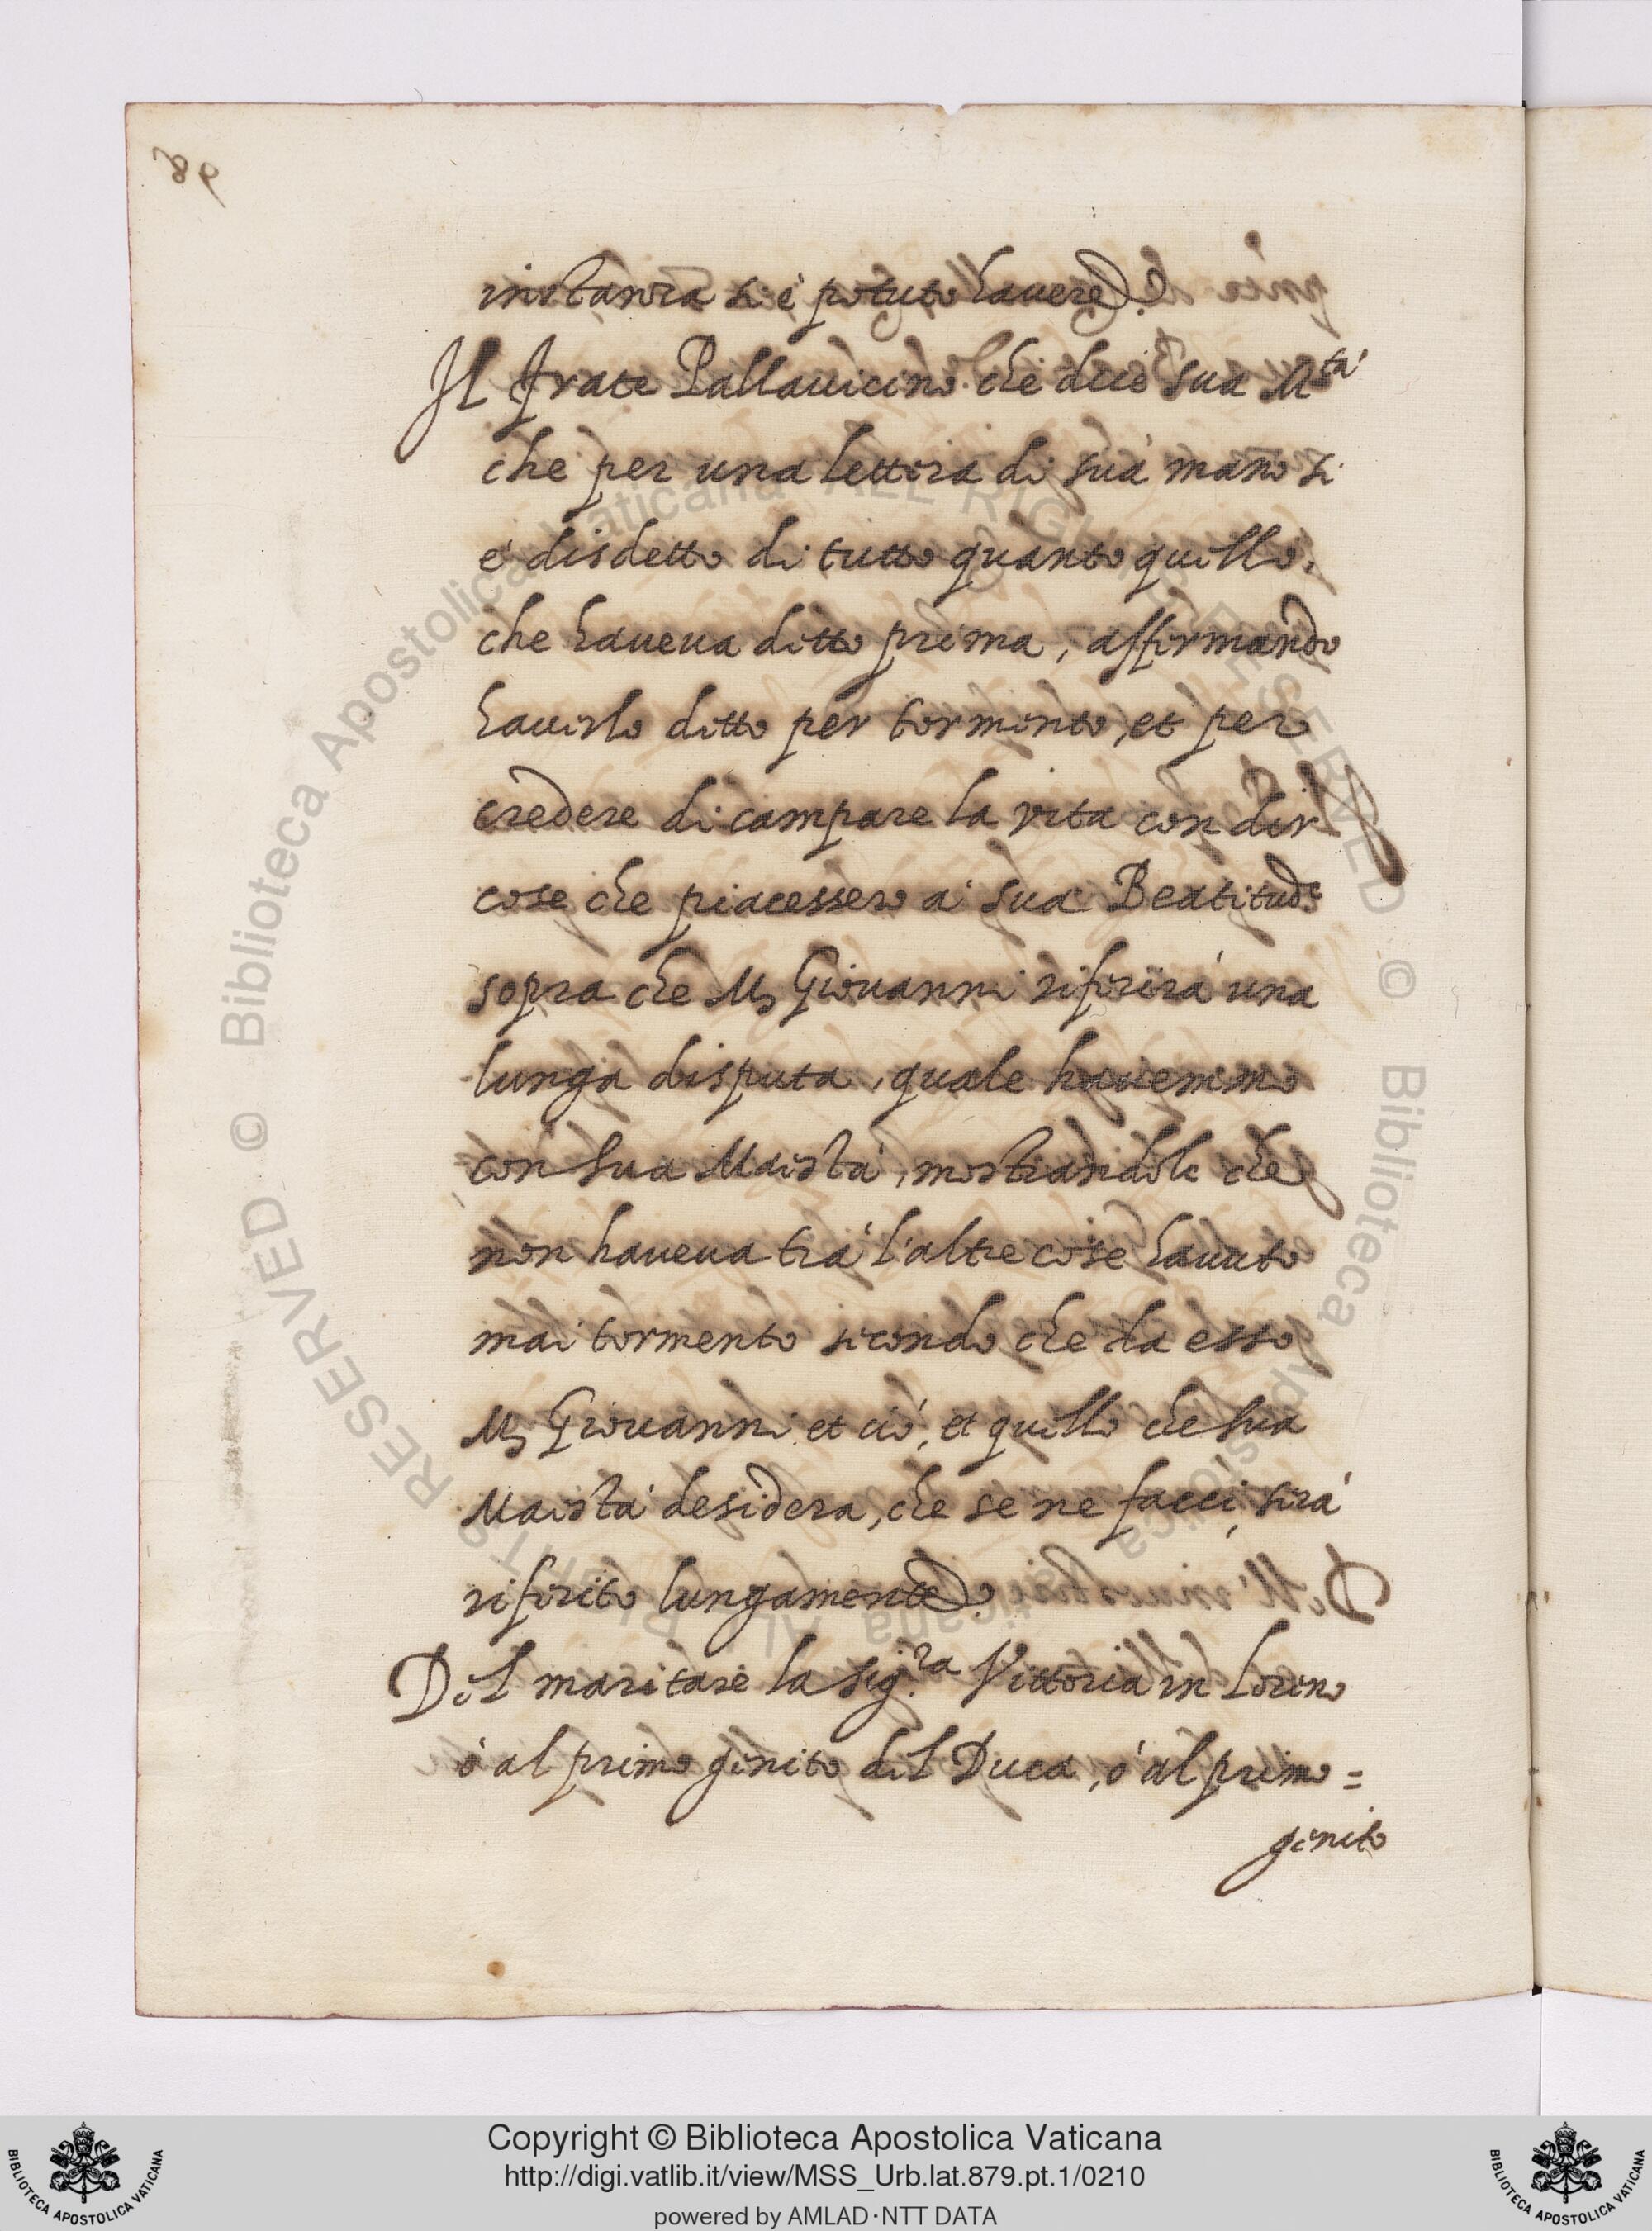 instanza si è potuto havere.
Il frate Pallavicino che dice sua M.tà
che per una lettera di sua mano si
è disdetto di tutto quanto quello,
che haveva detto prima, affirmando
haverlo detto per tormento, et per
credere di campare la vita con dir
cose che piacessero a sua Beatitud.e
sopra che M. Giovanni riferirà una
lunga disputa, quale havemmo
con sua Maestà, mostrandole che
non haveva trà l'altre cose havuto
mai tormento secondo che da esso
M. Giovanni et ciò, et quello che sua
Maestà desidera, che se ne facci, serà
riferito lungamente.
Del maritare la sig.ra Vittoria in Loreno
ò al primo genito del Duca, ò al primo=
genito
Copyright © Biblioteca Apostolica Vaticana
http://digi.vatlib.it/view/MSS_Urb.lat.879.pt.1/0210
powered by AMLAD·NTT DATA
BIBLIOTECA APOSTOLICA VATICANA
BIBLIOTECA APOSTOLICA VATICANA